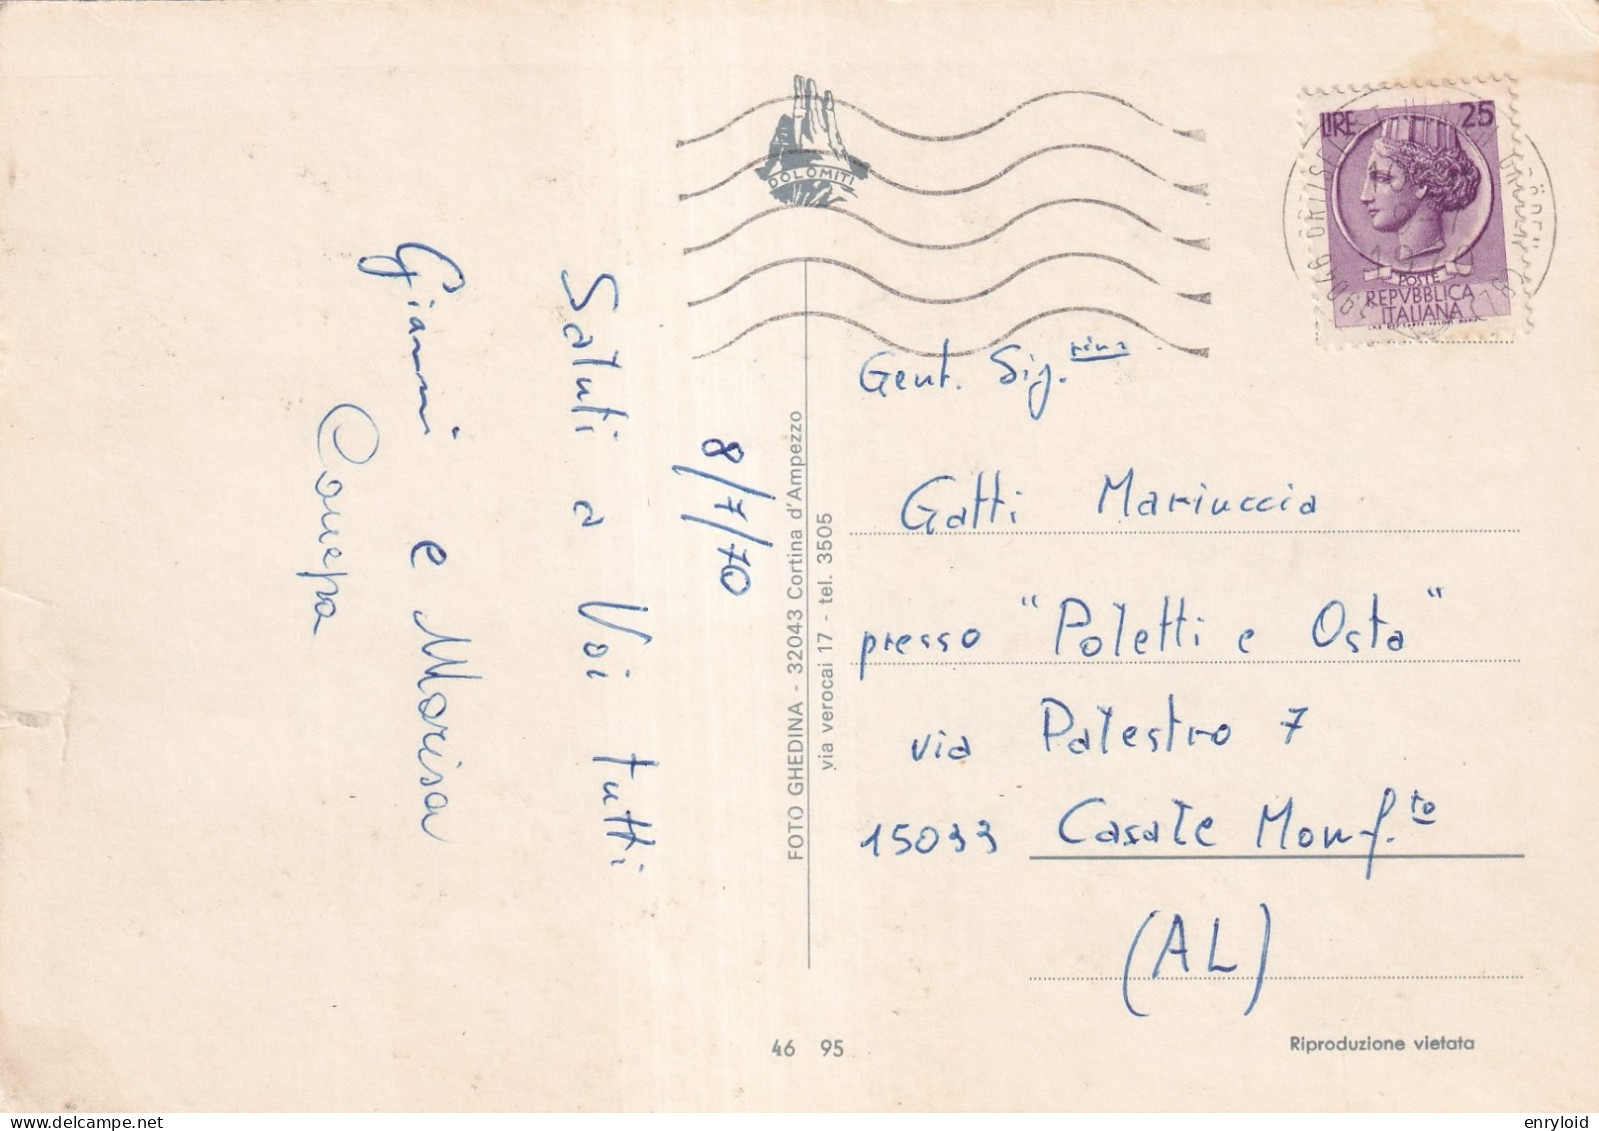 8/7/70
Saluti a Voi tutti
Gianni e Marisa
Canepa
DOLOMITI
FOTO GHEDINA - 32043 Cortina d'Ampezzo
via verocai 17 - tel. 3505
LIRE 25
POSTE
REPVBBLICA
ITALIANA
Gent. Sig.rina
Gatti Mariuccia
presso "Poletti e Osta"
via Palestro 7
15033 Casale Monf.to
(AL)
46 95
Riproduzione vietata
enryloid